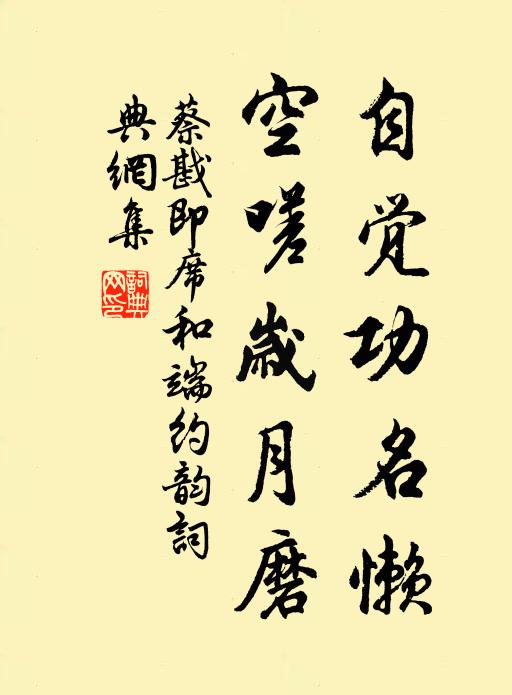 自觉功名懒
空嗟岁月磨
蔡戡即席和端约韵詞
典網集
詞典
网印